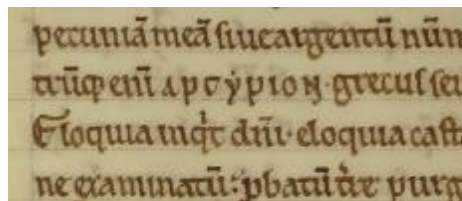 pecuniā meā siue argentū nūm
trūq; enī ΑΡΓΎΡΙΟΝ· grecus ser
Eloquia inqͥt dn̄i· eloquia cast
ne examinatū: ꝓbatū tͤrͤ purg